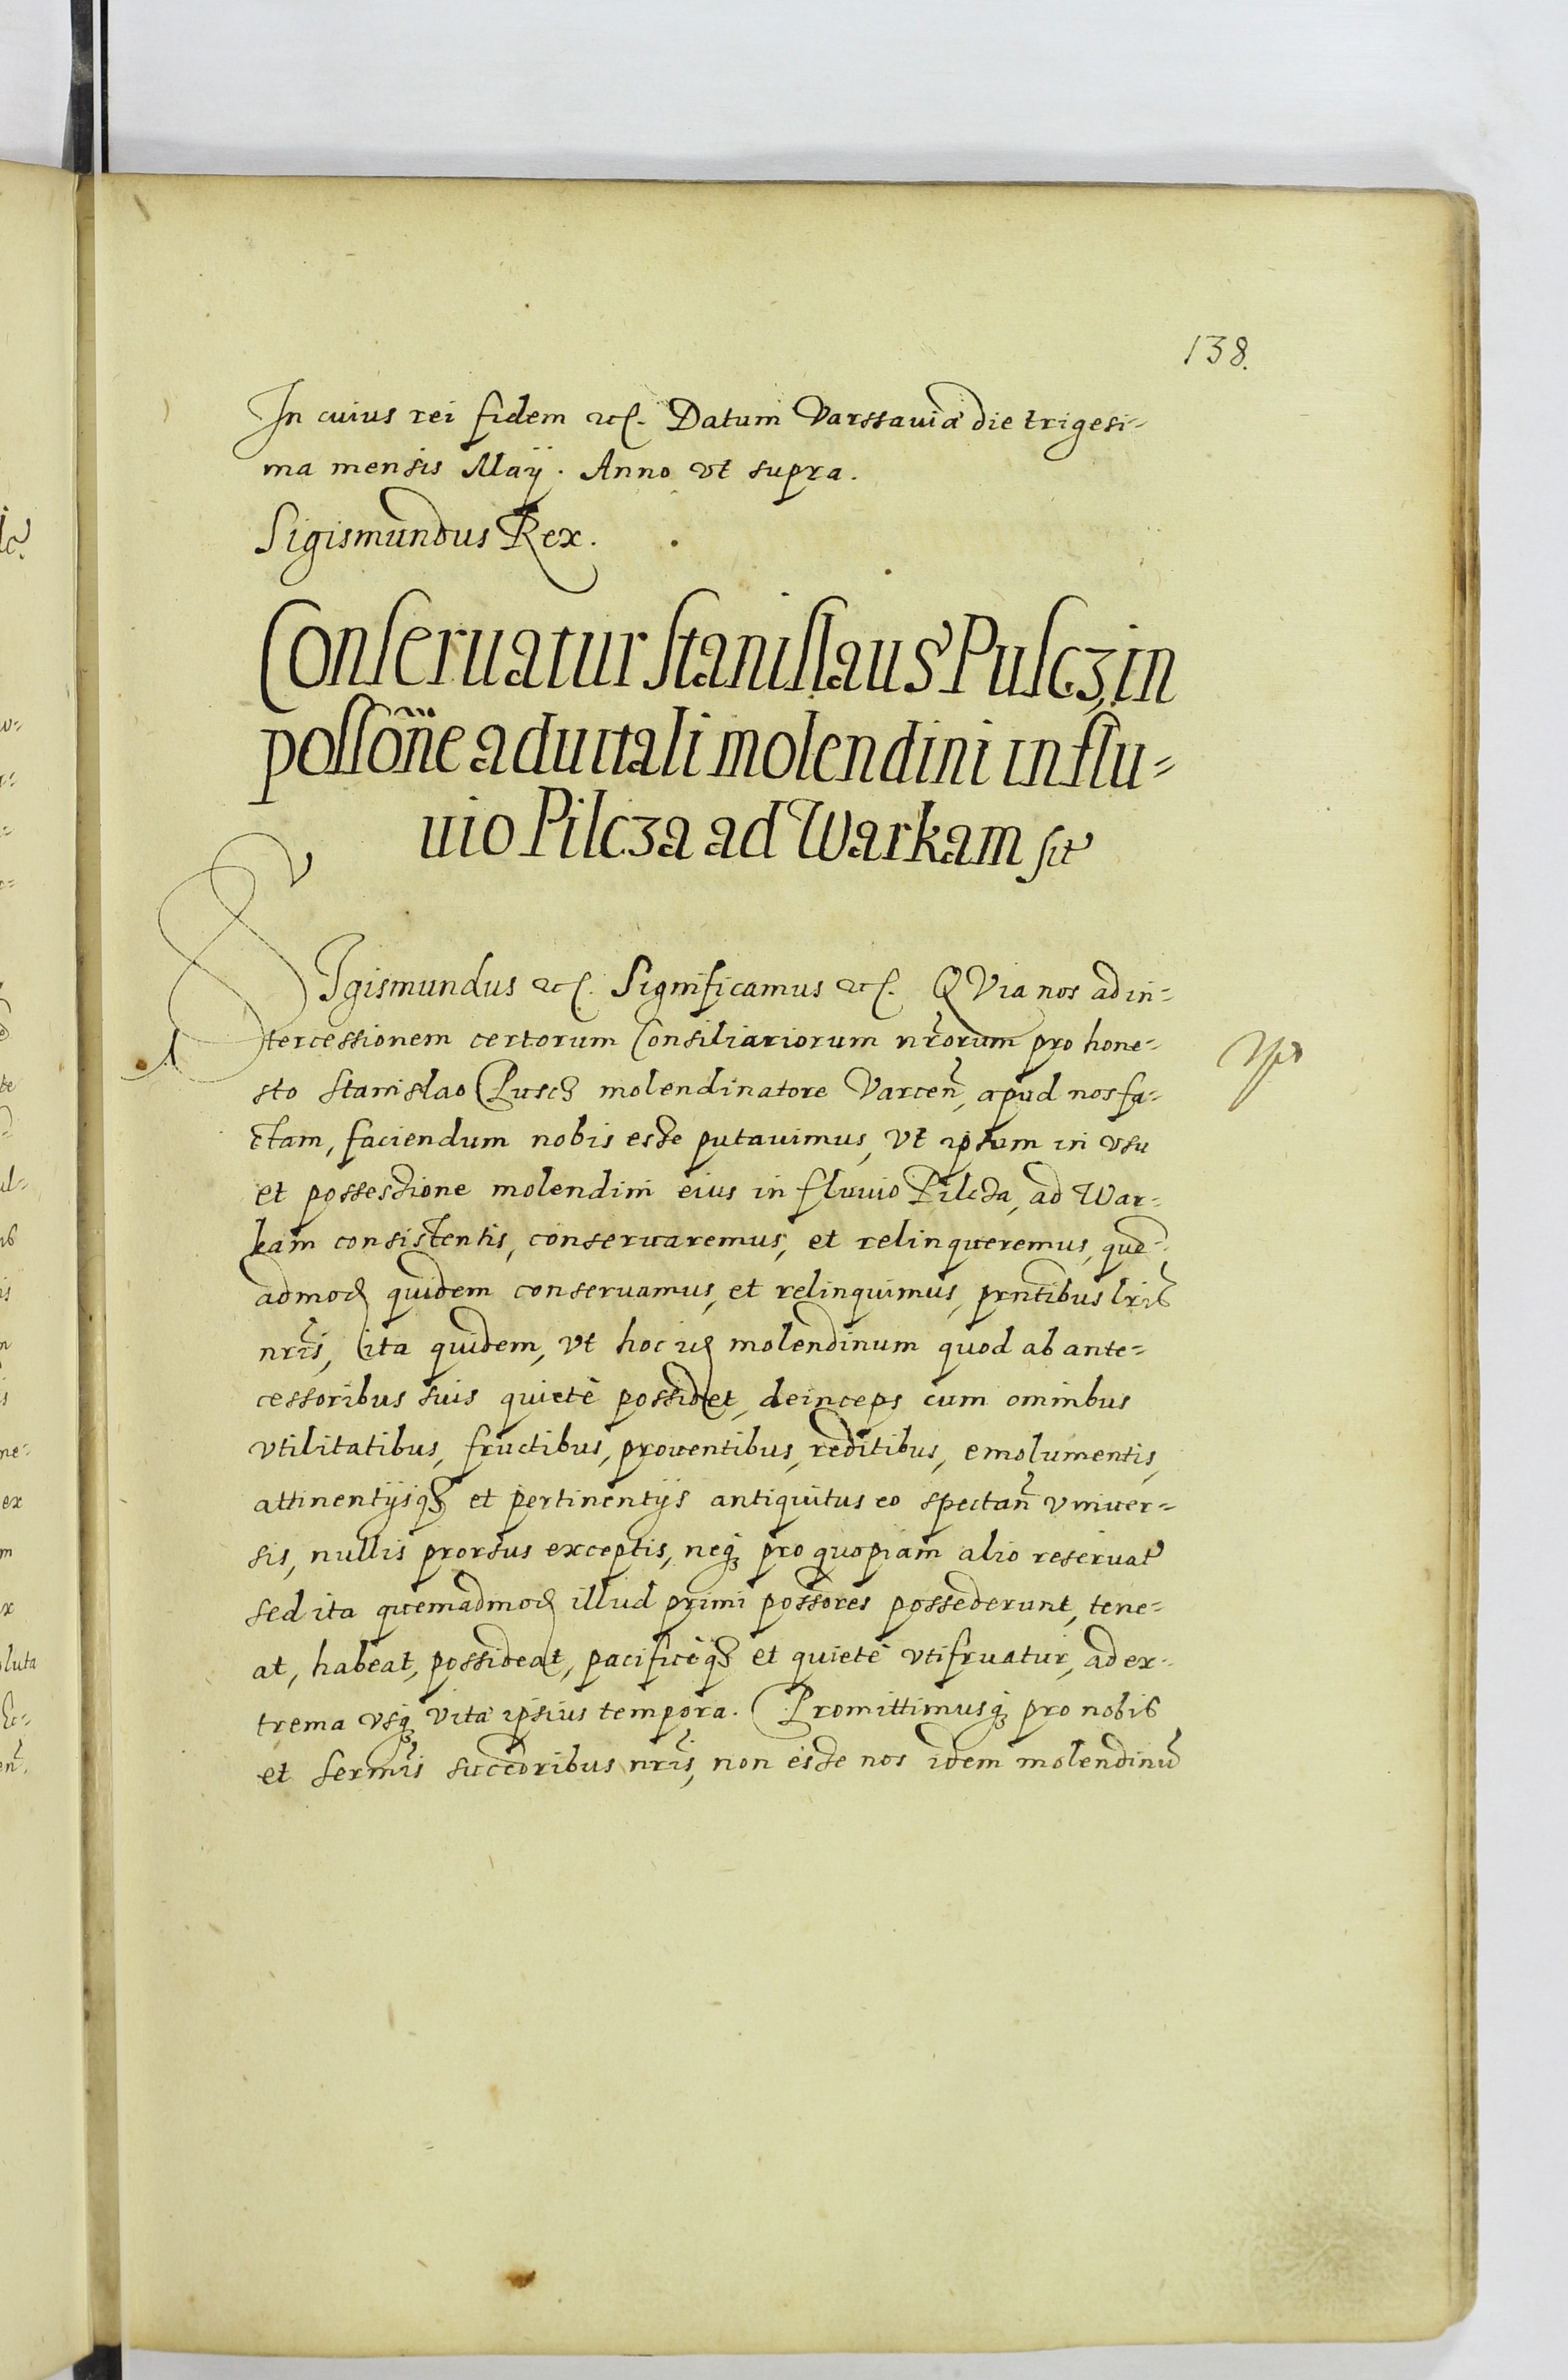 138.
In cuius rei fidem etc. Datum Varssauiæ die trigesi-
ma mensis Maÿ. Anno vt supra.
Sigismundus Rex.
Conseruatur Stanislaus Pulcz in
possone aduitali molendini in flu-
uio Pilcza ad Warkam sit
SIgismundus etc. Significamus etc. QVia nos ad in-
tercessionem certorum Consiliariorum nrorum pro hone-
sto Stanislao Puscz molendinatore Varcen, apud nos fa-
ctam, faciendum nobis esse putauimus, vt ipsum in vsu
et possessione molendini eius in fluuio Pilcza, ad War-
kam consistentis, conseruaremus, et relinqueremus, que-
admod quidem conseruamus, et relinquimus, prntibus lris
nris, ita quidem, vt hoc id molendinum quod ab ante-
cessoribus suis quietè possidet, deinceps cum omnibus
vtilitatibus, fructibus, prouentibus, reditibus, emolumentis,
attinentijsq3 et pertinentijs antiquitus eo spectan vniuer-
sis, nullis prorsus exceptis, neq3 pro quopiam alio reseruat
sed ita quemadmod illud primi possores possederunt, tene-
at, habeat, possideat, pacificèq3 et quietè vtifruatur, ad ex-
trema vsq3 vitæ ipsius tempora. Promittimusq3 pro nobis
et sermis succoribus nris, non esse nos idem molendinu